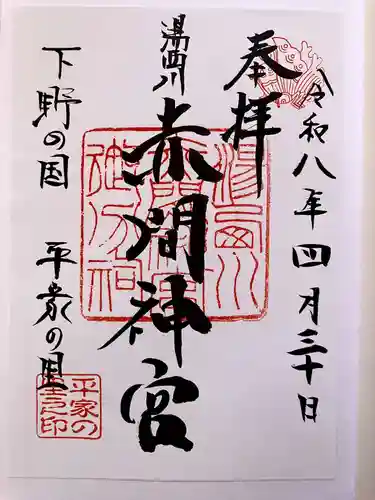 令和八年四月三十日
奉拝
湯西川
赤間神宮
下野の国 平家の里
平家の
里之印